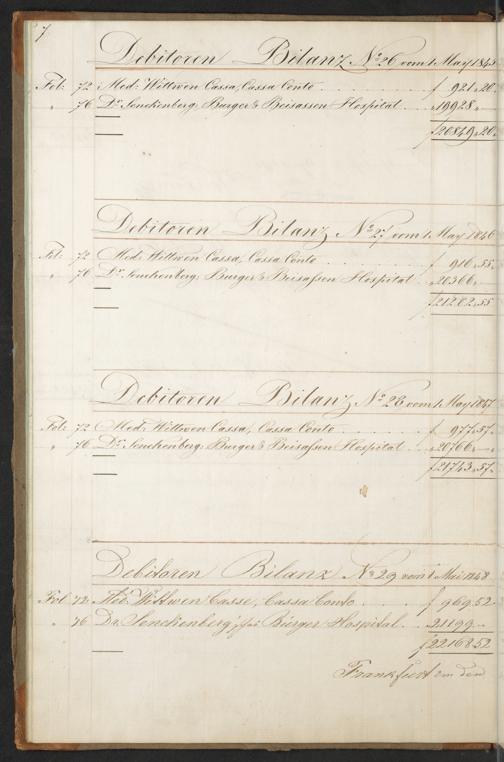 7
Debitoren Bilanz No 26 vom 1 May 1845
Fol: 72 Med: Wittwen Cassa, Cassa Conto f 921 „ 20 „
„ 76 Dr Senckenberg: Burger & Beisassen Hospital „ 19928 „
f 20849 „ 20 „
Debitoren Bilanz No 27 vom 1 May 1846
Fol: 72 Med: Wittwen Cassa, Cassa Conto f 916 „ 55 „
„ 76 Dr Senckenberg: Burger & Beisassen Hospital „ 20366 „
f 21282 „ 55
Debitoren Bilanz No 28 vom 1 May 1847
Fol: 72 Med: Wittwen Cassa, Cassa Conto f 977 „ 57 „
„ 76 Dr Senckenberg: Burger & Beisassen Hospital „ 20766 „ — „
f 21743 „ 57 „
Debitoren Bilanz No 29 vom 1 Mai 1848
Fol 72 Med. Wittwen Casse, Cassa Conto f 969 52
„ 76 Dr. Senckenberg Bürger Hospital „ 21199 —
f 22168 52
Frankfurt am den